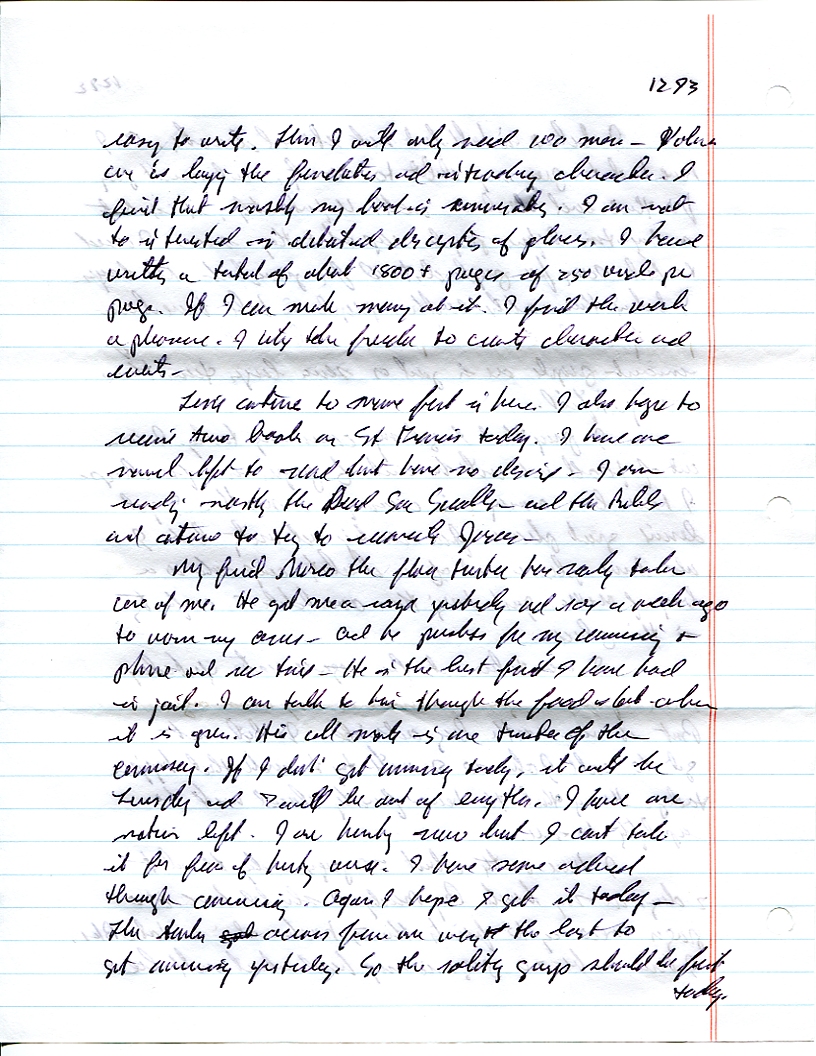 1293
easy to write. Then I will only need 100 more – Volume
one is laying the foundation and introducing characters. I
find that mostly my book is conversation. I am not
to interested in detailed description of places. I have
written a total of about 1800+ pages of 250 words per
page. If I can make money at it. I find the work
a pleasure. I like the freedom to create characters and
events –
continue to move fast in here. I also hope to
receive two books on St Francis today. I have one
novel left to read but have no desire – I am
reading mostly the Dead Sea Scrolls – and the Bible
and continue to try to Jesus –
My friend the has really taken
care of me. He got me a yesterday and a week ago
to my – and he purchases for my commissary +
phone and – He is the best friend I have had
in jail. I can talk to him through the food when
it is open. His cell mate is one of the
commissary. If I don't get commissary today, it could be
Tuesday and I will be out of everything. I have one
left. I am hurting now but I can't take
it for fear of hurting worse. I have some ordered
through commissary. Again I hope I get it today –
The across from me were the last to
get commissary yesterday. So the guys should be first
today.